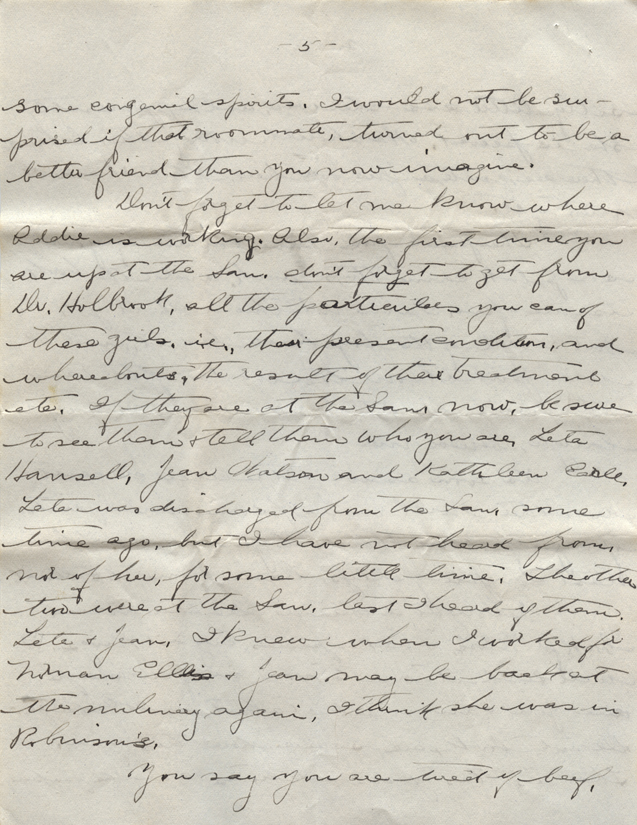 - 5 -
some congenial spirits. I would not be sur-
prised if that roommate, turned out to be a
better friend than you now imagine.
Don't forget to let me know where
Eddie is working. Also, the first time you
are up at the San. don't forget to get from
Dr. Holbrook, all the particulars you can of
these girls, i.e., their present condition, and
whereabouts, the result of their treatment
etc. If they are at the San, now, be sure
to see them & tell them who you are, Leta
Hansell, Jean Watson and Kathleen
Leta was discharged from the San, some
time ago, but I have not heard from,
nor of her, for some little time. The other
two were at the San. last I heard of them.
Leta & Jean, I knew when I worked for
Norman Ellis & Jean may be back at
the millinery again, I think she was in
Robinson's.
You say you are tired of beef,